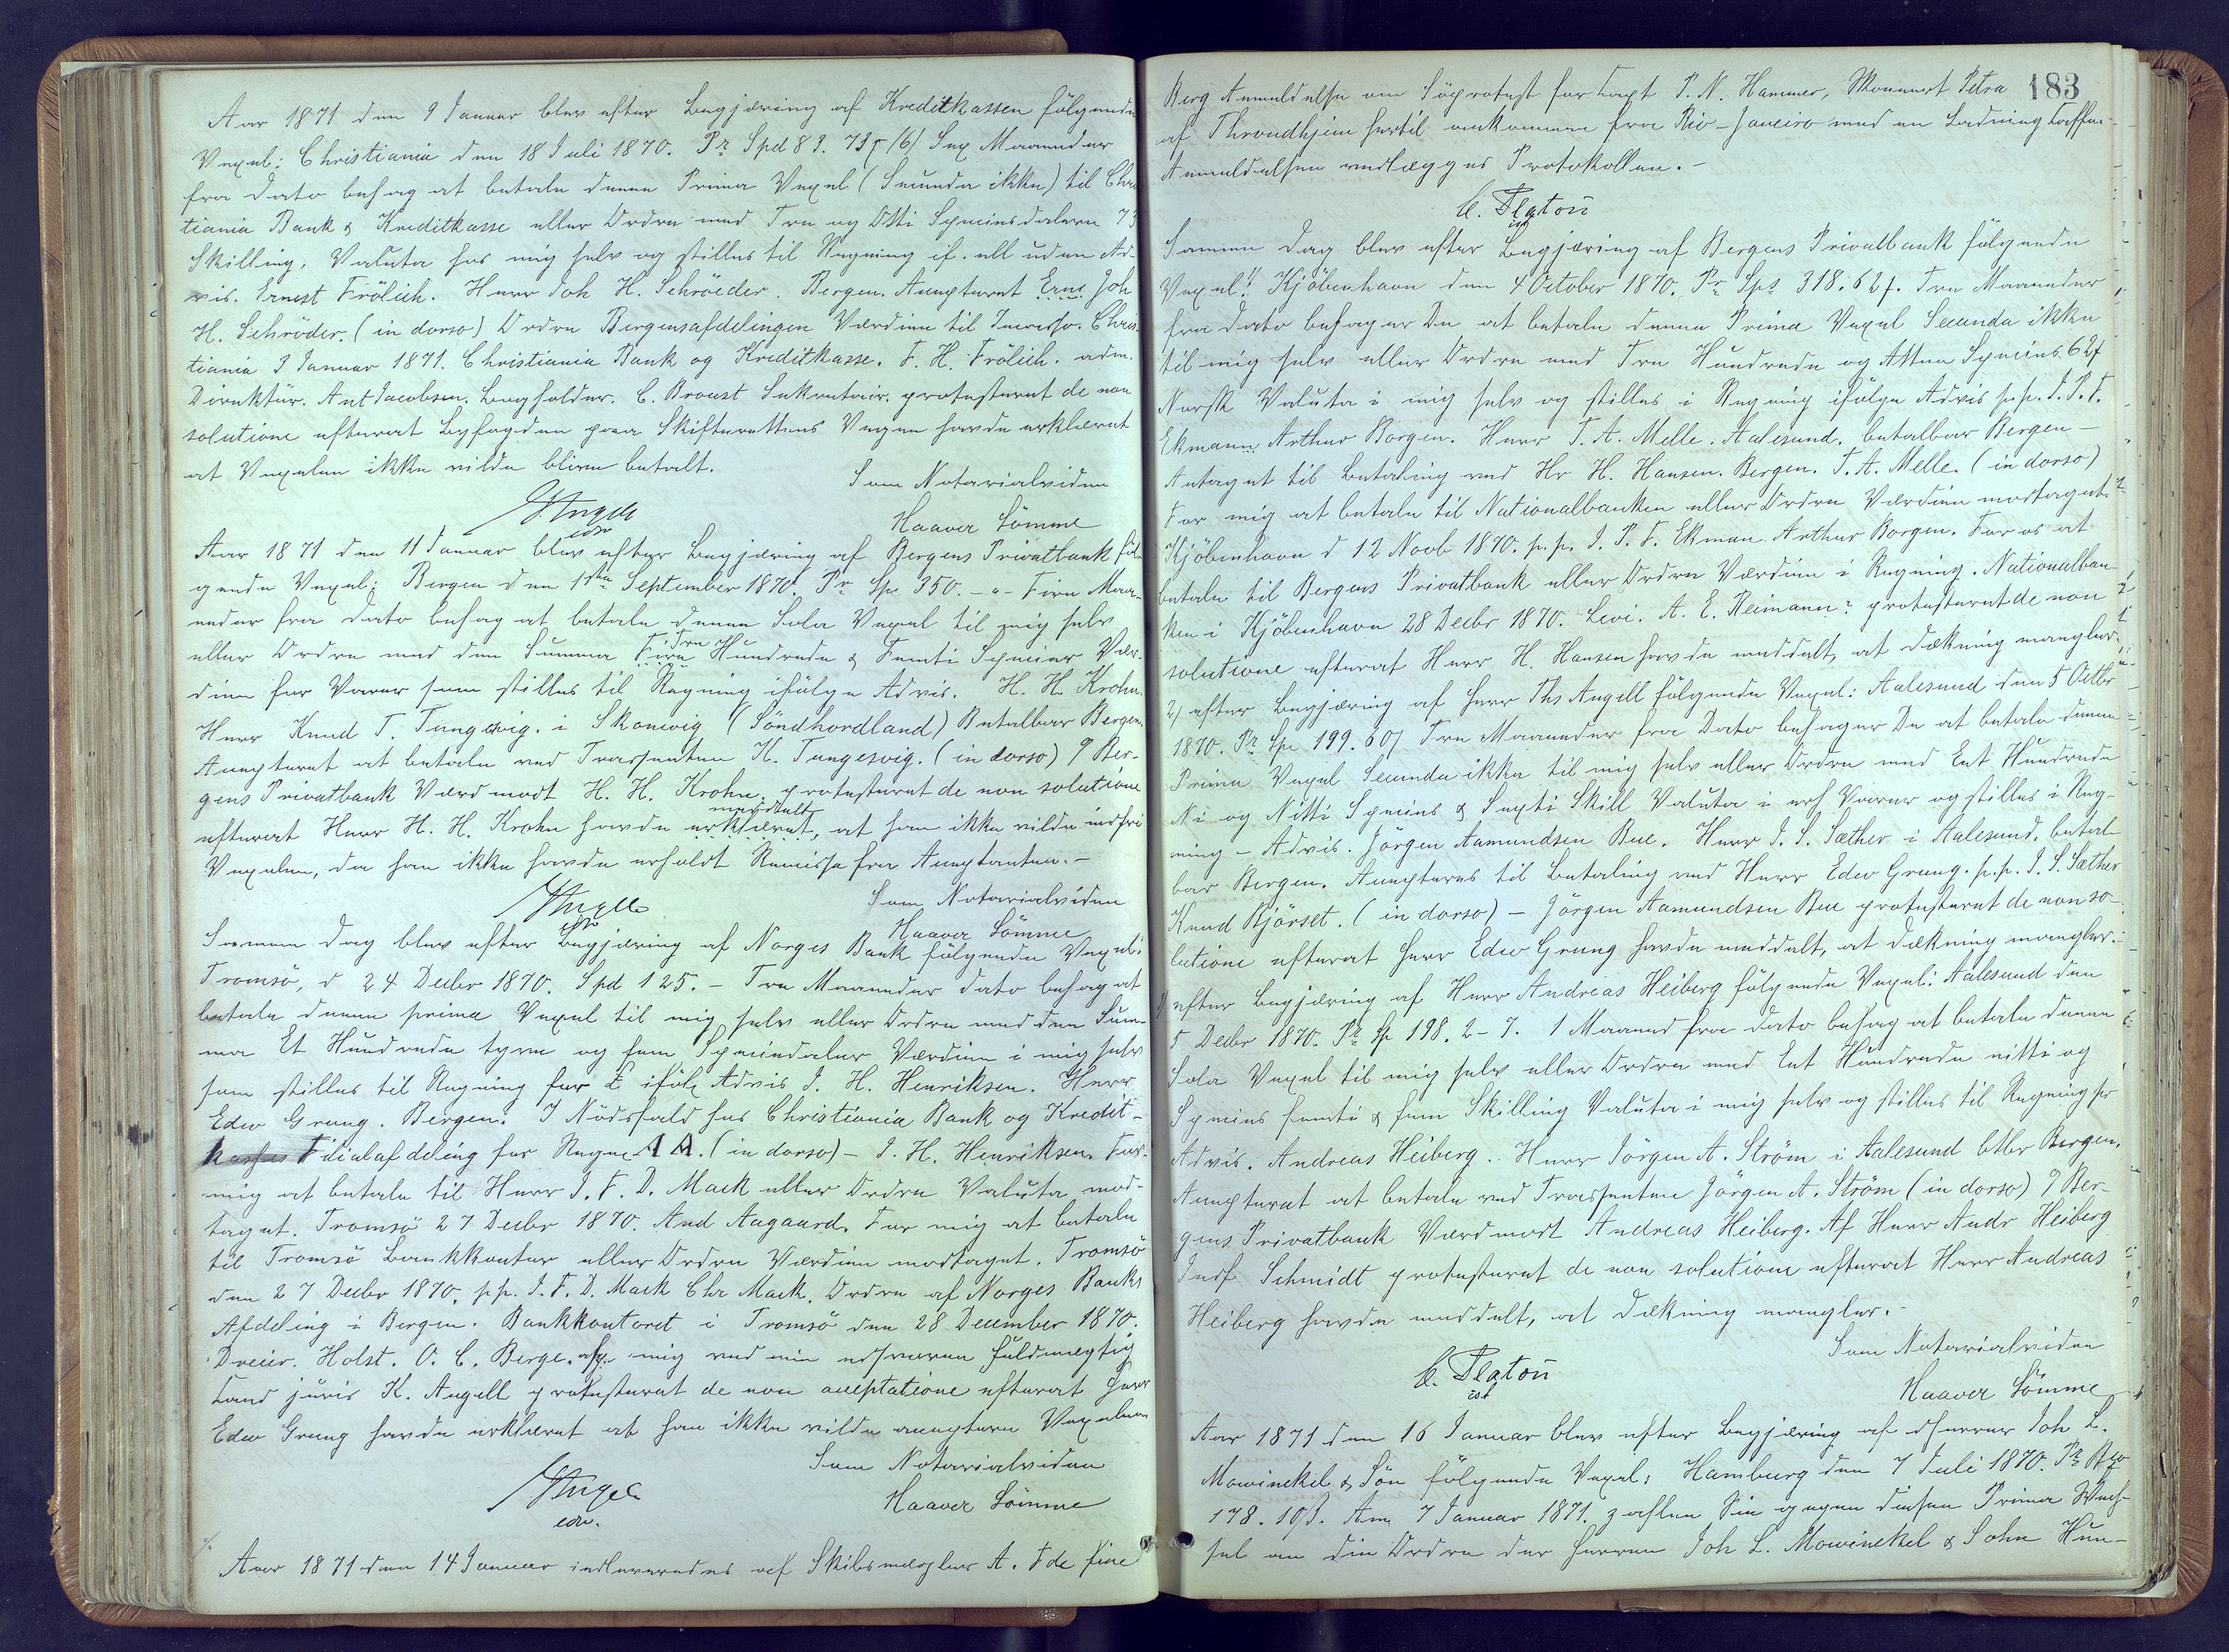 Aar 1871 den 9 Januar blev efter Begjæring af Kreditkassen følgende
Vexel: Christiania den 18 Juli 1870. Pr Spd 83. 73 ß (6) Sex Maaneder
fra Dato behag at betale denne Prima Vexel (Secunda ikke) til Chris
tiania Bank & Kreditkasse eller Ordre med Tre og Otti Speciesdalere 73
Skilling, Valuta hos mig selv og stilles til Regning if. ell uden Ad-
vis. Ernest Frölich. Herr Joh H. Schröeder. Bergen. Accepteret Erns Joh
H. Schröder. (in dorso) Ordre Bergensafdelingen Værdien til Incasso. Chris
tiania 3 Januar 1871. Christiania Bank og Kreditkasse. F. H. Frölich. adm.
Direktör. Ant Jacobsen. Bogholder. C. Kroust Sekretair. protesteret de non
solutione efterat Byfogden paa Skifterettens Vegne havde erklæret
at Vexelen ikke vilde blive betalt.
Som Notarialvidne
Angell
edv
Haaver Sömme
Aar 1871 den 11 Januar blev efter Begjæring af Bergens Privatbank føl
gende Vexel: Bergen den 1ste September 1870. Pr Sp 350. -"- Fire Maa-
neder fra Dato behag at betale denne Sola Vexel til mig selv
Tre
eller Ordre med den Summa Fire Hundrede & Femti Specier Vær-
dien for Varer som stilles til Regning ifölge Advis. H. H. Krohn.
Herr Knud T. Tungesvig. i Skonevig (Söndhordland) Betalbar Bergen.
Accepteret at betale ved Trassenten K. Tungesvig. (in dorso) Ber-
gens Privatbank Værd modt H. H. Krohn. protesteret de non solutione
meddelt
efterat Herr H. H. Krohn havde erklæret, at han ikke vilde indfri
Vexelen, da han ikke havde erholdt Remisse fra Acceptanten.-
Som Notarialvidne
Angell
edv
Haaver Sömme
Samme Dag blev efter Begjæring af Norges Bank følgende Vexel:
Tromsö, d 24 Decbr 1870. Spd 125. - Tre Maaneder Dato behag at
betale denne prima Vexel til mig selv eller Ordre med den Sum-
ma Et Hundrede tyve og fem Speciedaler Værdien i mig selv
som stilles til Regning for E ifölg Advis J. H. Henriksen. Herr
Edw Grung. Bergen. I Nödsfald hos Christiania Bank og Kredit-
kasses Filialafdeling for Regne A A. (in dorso) - J. H. Henriksen. For
mig at betale til Herr J. F. D. Mack eller Ordre Valuta mod-
taget. Tromsö 27 Decbr 1870. And Aagaard. For mig at betale
til Tromsö Bankkontor eller Ordre Værdien modtaget. Tromsö
den 27 Decbr 1870. pp. J. F. D. Mack Chr Mack. Ordre af Norges Banks
Afdeling i Bergen. Bankkontoret i Tromsö den 28 December 1870.
Dreier. Holst. O. C. Berge. af mig ved min edsvorne Fuldmægtig
Cand juris K. Angell protesteret de non acceptatione efterat Herr
Edw Grung havde erklæret at han ikke vilde acceptere Vexelen
Som Notarialvidne
Angell
edv.
Haaver Sömme
Aar 1871 den 14 Januar indleveredes af Skibsmægler A. F de fine
183
Berg Anmeldelse om Söprotest for Capt P. N. Hammer, Skonnert Petra
af Throndhjem hertil ankommen fra Rio-Janeiro med en Ladning Caffe.-
Anmeldelsen vedlægges Protokollen.-
C. Platou
cst
Samme Dag blev efter Begjæring af Bergens Privatbank følgende
Vexel: 1) Kjöbenhavn den 4 October 1870. Pr Sps 318. 62 ß. Tre Maaneder
fra Dato behager De at betale denne Prima Vexel Secunda ikke
til mig selv eller Ordre med Tre Hundrede og Atten Specier 62 ß
Norsk Valuta i mig selv og stilles i Regning ifölge Advis p.p. J. P. F.
Ekmann. Arthur Borgen. Herr T. A. Melle. Aalesund. betalbar Bergen -
Antaget til Betaling ved Hr H. Hansen. Bergen. T. A. Melle. (in dorso)
For mig at betale til Nationalbanken eller Ordre Værdien modtaget.
Kjöbenhavn d 12 Novb 1870. p.p. J. P. F. Ekman. Arthur Borgen. For os at
betale til Bergens Privatbank eller Ordre Værdien i Regning. Nationalban-
ken i Kjöbenhavn 28 Decbr 1870. Levi. A. E. Reimann? protesteret de non
solutione efterat Herr H. Hansen havde meddelt, at Dækning mangler.
2) efter Begjæring af Herr Ths Angell følgende Vexel: Aalesund den 5 Octbr
1870. Pr Sp 199. 60 ß Tre Maaneder fra Dato behager De at betale denne
Prima Vexel Secunda ikke til mig selv eller Ordre med Et Hundrede
Ni og Nitti Specier & Sexti Skill Valuta i erh Varer og stilles i Reg-
ning - Advis. Jörgen Aamundsen Bue. Herr J. S. Sæther i Aalesund. betal-
bar Bergen. Accepteres til Betaling ved Herr Edw Grung. p.p. J. S. Sæther
Knud Bjórset. (in dorso) - Jörgen Aamundsen Bue protesteret de non so-
lutione efterat Herr Edw Grung havde meddelt, at Dækning mangler.-
3) efter Begjæring af Herr Andreas Heiberg følgende Vexel: Aalesund den
5 Decbr 1870. Pr Sp 198. 2 - 7. 1 Maaned fra Dato behag at betale denne
Sola Vexel til mig selv eller Ordre med Et Hundrede nitti og
Specier femti & fem Skilling Valuta i mig selv og stilles til Regning pr
Advis. Andreas Heiberg. Herr Jörgen A. Ström i Aalesund btlbr Bergen.
Accepteret at betale ved Trassenten Jörgen A. Ström (in dorso) Ber-
gens Privatbank Værd modt Andreas Heiberg. Af Herr Andr Heiberg
Indf. Schmidt protesteret de non solutione efterat Herr Andreas
Heiberg havde meddelt, at Dækning mangler.-
Som Notarialvidne
C. Platou
cst
Haaver Sömme
Aar 1871 den 16 Januar blev efter Begjæring af Dherrer Joh L.
Mowinckel & Sön følgende Vexel: Hamburg den 7 Juli 1870. Pr Bco
178. 10 ß. Am 7 Januar 1871. zahlen Sie gegen diesen Prima Wech-
sel an die Ordre der Herren Joh L. Mowinckel & Sohn Hun-